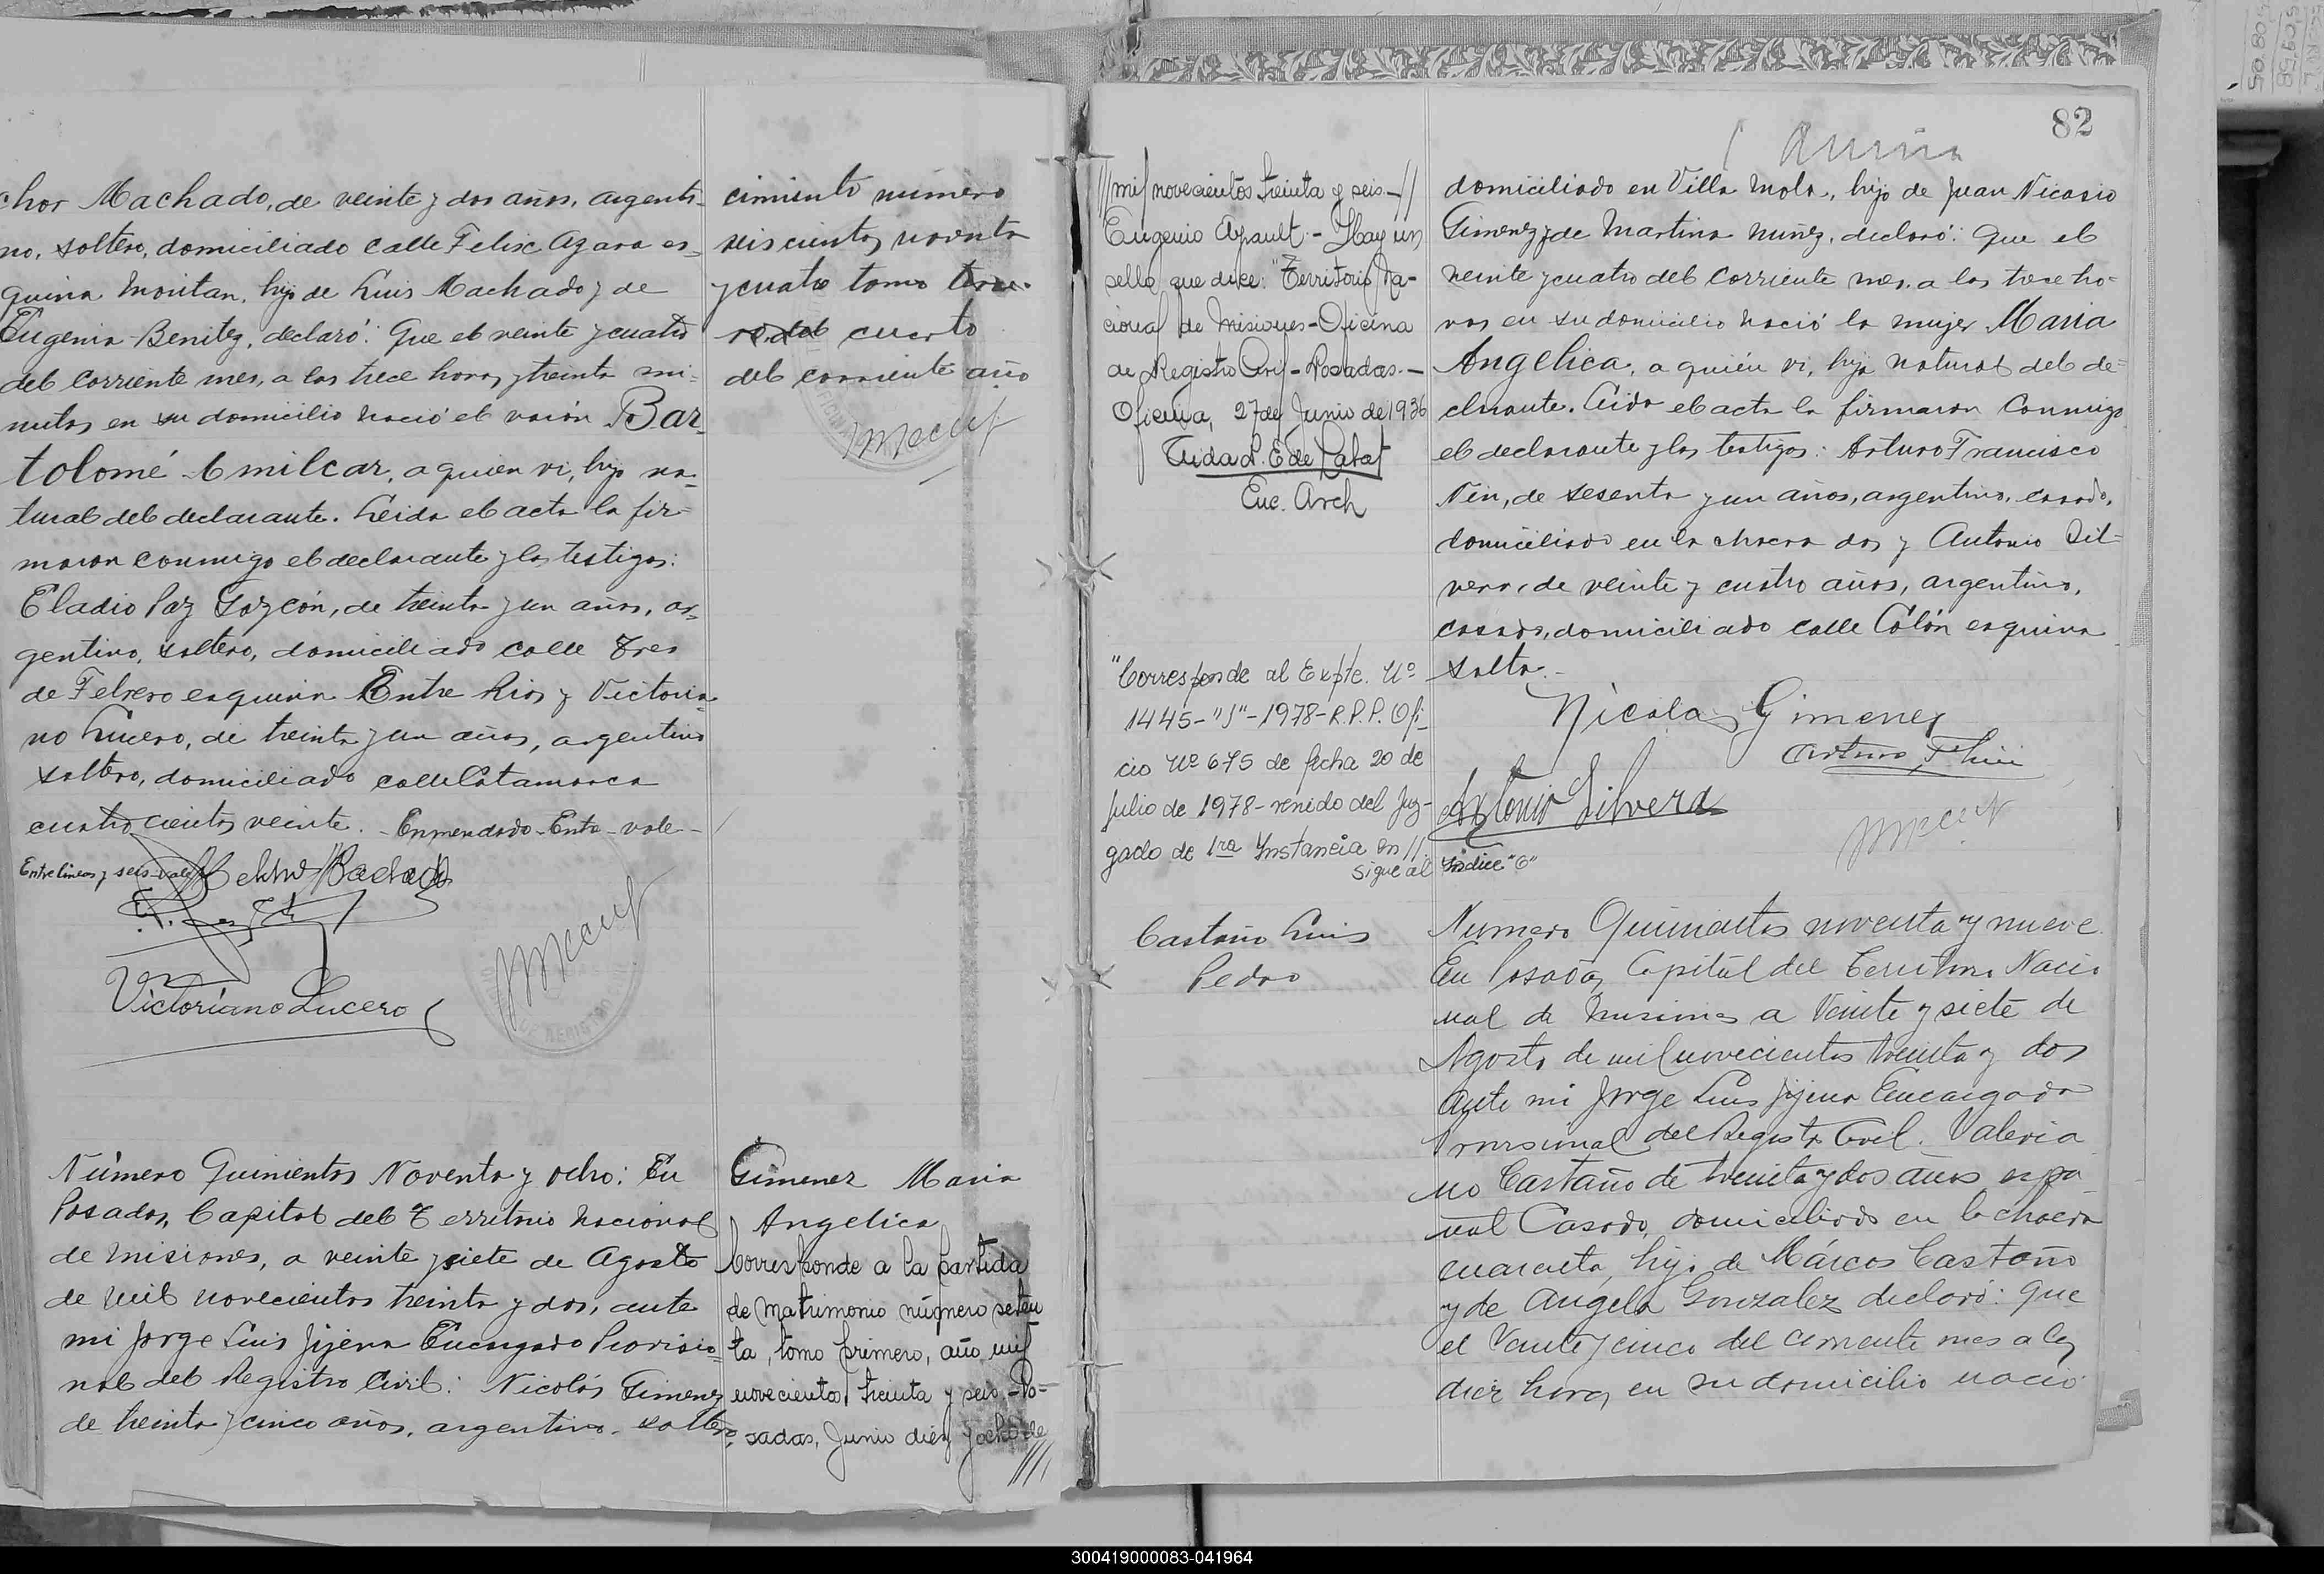 chor Machado, de veinte y dos años, argenti-
no, soltero, domiciliado calle Felix Azara es-
quina Moritan, hijo de Luis Machado y de
Eugenia Benitez, declaró: Que el veinte y cuatro
del corriente mes, a las trece horas y treinta mi-
nutos en su domicilio nació el varón Bar-
tolomé Amilcar, a quien vi, hijo na-
tural del declarante. Leida el acta la fir-
maron conmigo el declarante y los testigos:
Eladio Paz Garzón, de treinta y un años, ar-
gentino, soltero, domiciliado calle Tres
de Febrero esquina Entre Rios y Victoria-
no Lucero, de treinta y un años, argentino
soltero, domiciliado calle Catamarca
cuatrocientos veinte. - Enmendado - Entre - vale -
Entre lineas y seis - vale
Victoriano Lucero
cimiento número
seiscientos noventa
y cuatro tomo
cuarto
del corriente año
Número Quinientos Noventa y ocho: En
Posadas, Capital del Territorio Nacional
de Misiones, a veinte y siete de Agosto
de mil novecientos treinta y dos, ante
mi Jorge Luis Jijena Encargado Proviso-
nal del Registro Civil: Nicolás Gimenez
de treinta y cinco años, argentino, soltero,
Gimenez Maria
Angelica
Corresponde a la partida
de matrimonio número seten
ta, tomo primero, año mil
novecientos treinta y seis - Po-
sadas, Junio diez y ocho de
////
82
/// mil novecientos treinta y seis - //
Eugenio Ayrault - Hay un
sello que dice: "Territorio Na-
cional de Misiones - Oficina
de Registro Civil - Posadas. -
Oficina, 27 de Junio de 1936
Enc. Arch
"Corresponde al Expte. Nº
1445-"J"-1978-R.P.P. Ofi-
cio Nº 675 de fecha 20 de
julio de 1978 - venido del Juz-
gado de 1ra Instancia en //
Sigue al Indice "G"
domiciliado en Villa Mola, hijo de Juan Nicasio
Gimenez y de Martina Nuñez, declaró: Que el
veinte y cuatro del corriente mes, a las trece ho-
ras en su domicilio nació la mujer Maria
Angelica, a quién vi, hija natural del de-
clarante. Leida el acta la firmaron conmigo
el declarante y los testigos: Arturo Francisco
Nin, de sesenta y un años, argentino, casado,
domiciliado en la chacra dos y Antonio Sil-
vera, de veinte y cuatro años, argentino,
casado, domiciliado calle Colón esquina
Salta. -
Nicolas Gimenez
Arturo F Nin
Antonio Silvera
Castaño Luis
Pedro
Numero Quinientos noventa y nueve.
En Posadas, Capital del Territorio Nacio
nal de Misiones a Veinte y siete de
Agosto de mil novecientos treinta y dos
Ante mi Jorge Luis Jijena Encargado
Provisional del Registro Civil. Valeria
no Castaño de treinta y dos años espa
ñol Casado, domiciliado en la chacra
cuarenta, hijo de Márcos Castaño
y de Angela Gonzalez declaró: Que
el Veinte y cinco del corriente mes a las
diez horas, en su domicilio nació
300419000083-041964